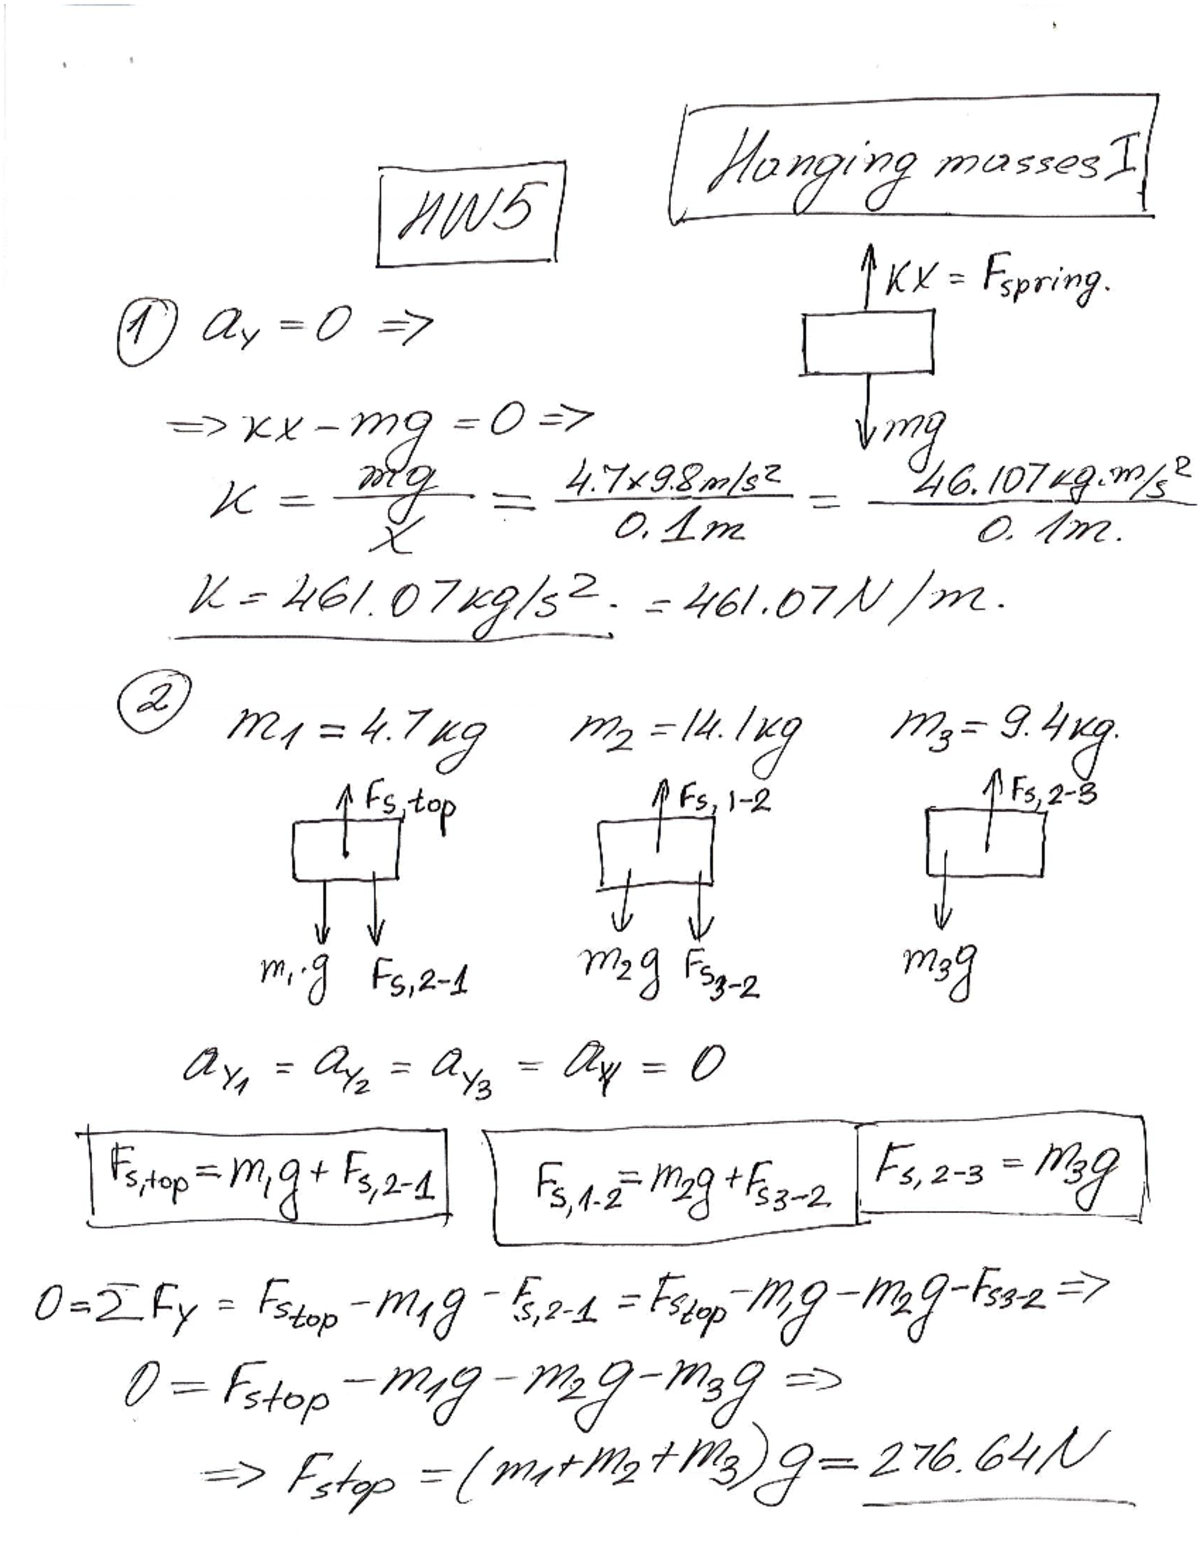 Hanging masses I
HW5
KX = Fspring.
① ay = 0 =>
=> KX - mg = 0 =>
mg
K = mg/X = 4.7x9.8m/s²/0.1m = 46.107kg.m/s²/0.1m.
K = 461.07kg/s². = 461.07N/m.
② m1 = 4.7kg m2 = 14.1kg m3 = 9.4kg.
Fs,top Fs,1-2 Fs,2-3
m1.g Fs,2-1 m2g Fs3-2 m3g
ay1 = ay2 = ay3 = ay = 0
Fs,top = m1g + Fs,2-1 Fs,1-2 = m2g + Fs3-2 Fs,2-3 = m3g
0 = ΣFy = Fstop - m1g - Fs,2-1 = Fstop - m1g - m2g - Fs3-2 =>
0 = Fstop - m1g - m2g - m3g =>
=> Fstop = (m1 + m2 + m3)g = 276.64N